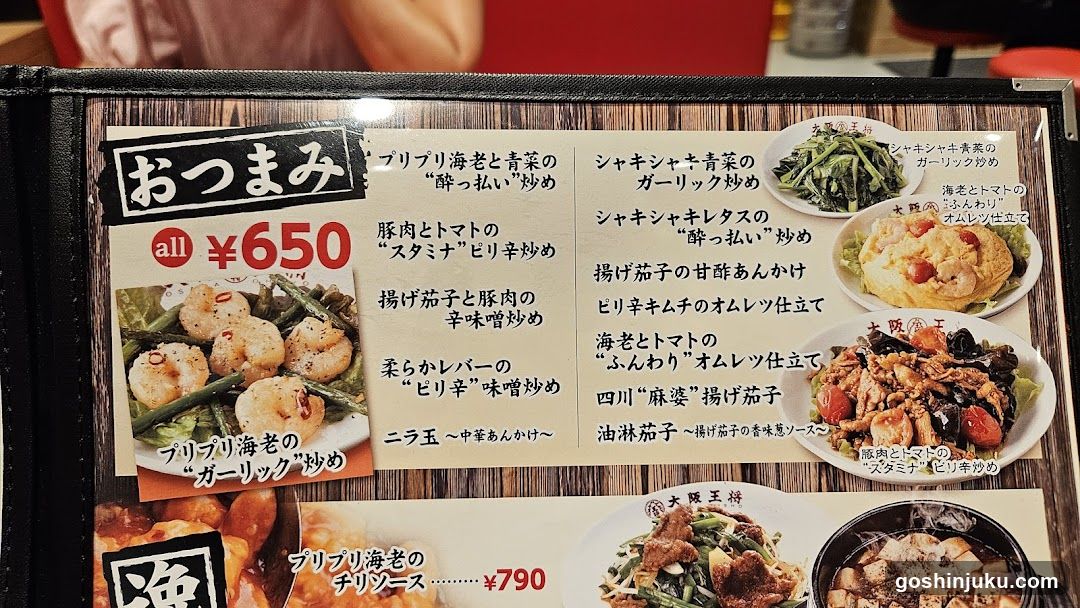 おつまみ
all ¥650
プリプリ海老の
“ガーリック”炒め
プリプリ海老と青菜の
“酔っ払い”炒め
豚肉とトマトの
“スタミナ”ピリ辛炒め
揚げ茄子と豚肉の
辛味噌炒め
柔らかレバーの
“ピリ辛”味噌炒め
ニラ玉 ～中華あんかけ～
シャキシャキ青菜の
ガーリック炒め
シャキシャキレタスの
“酔っ払い”炒め
揚げ茄子の甘酢あんかけ
ピリ辛キムチのオムレツ仕立て
海老とトマトの
“ふんわり”オムレツ仕立て
四川“麻婆”揚げ茄子
油淋茄子 ～揚げ茄子の香味葱ソース～
大阪王将
シャキシャキ青菜の
ガーリック炒め
海老とトマトの
“ふんわり”
オムレツ仕立て
大阪王
豚肉とトマトの
“スタミナ”ピリ辛炒め
プリプリ海老の
チリソース ········· ¥790
大阪王将
goshinjuku.com